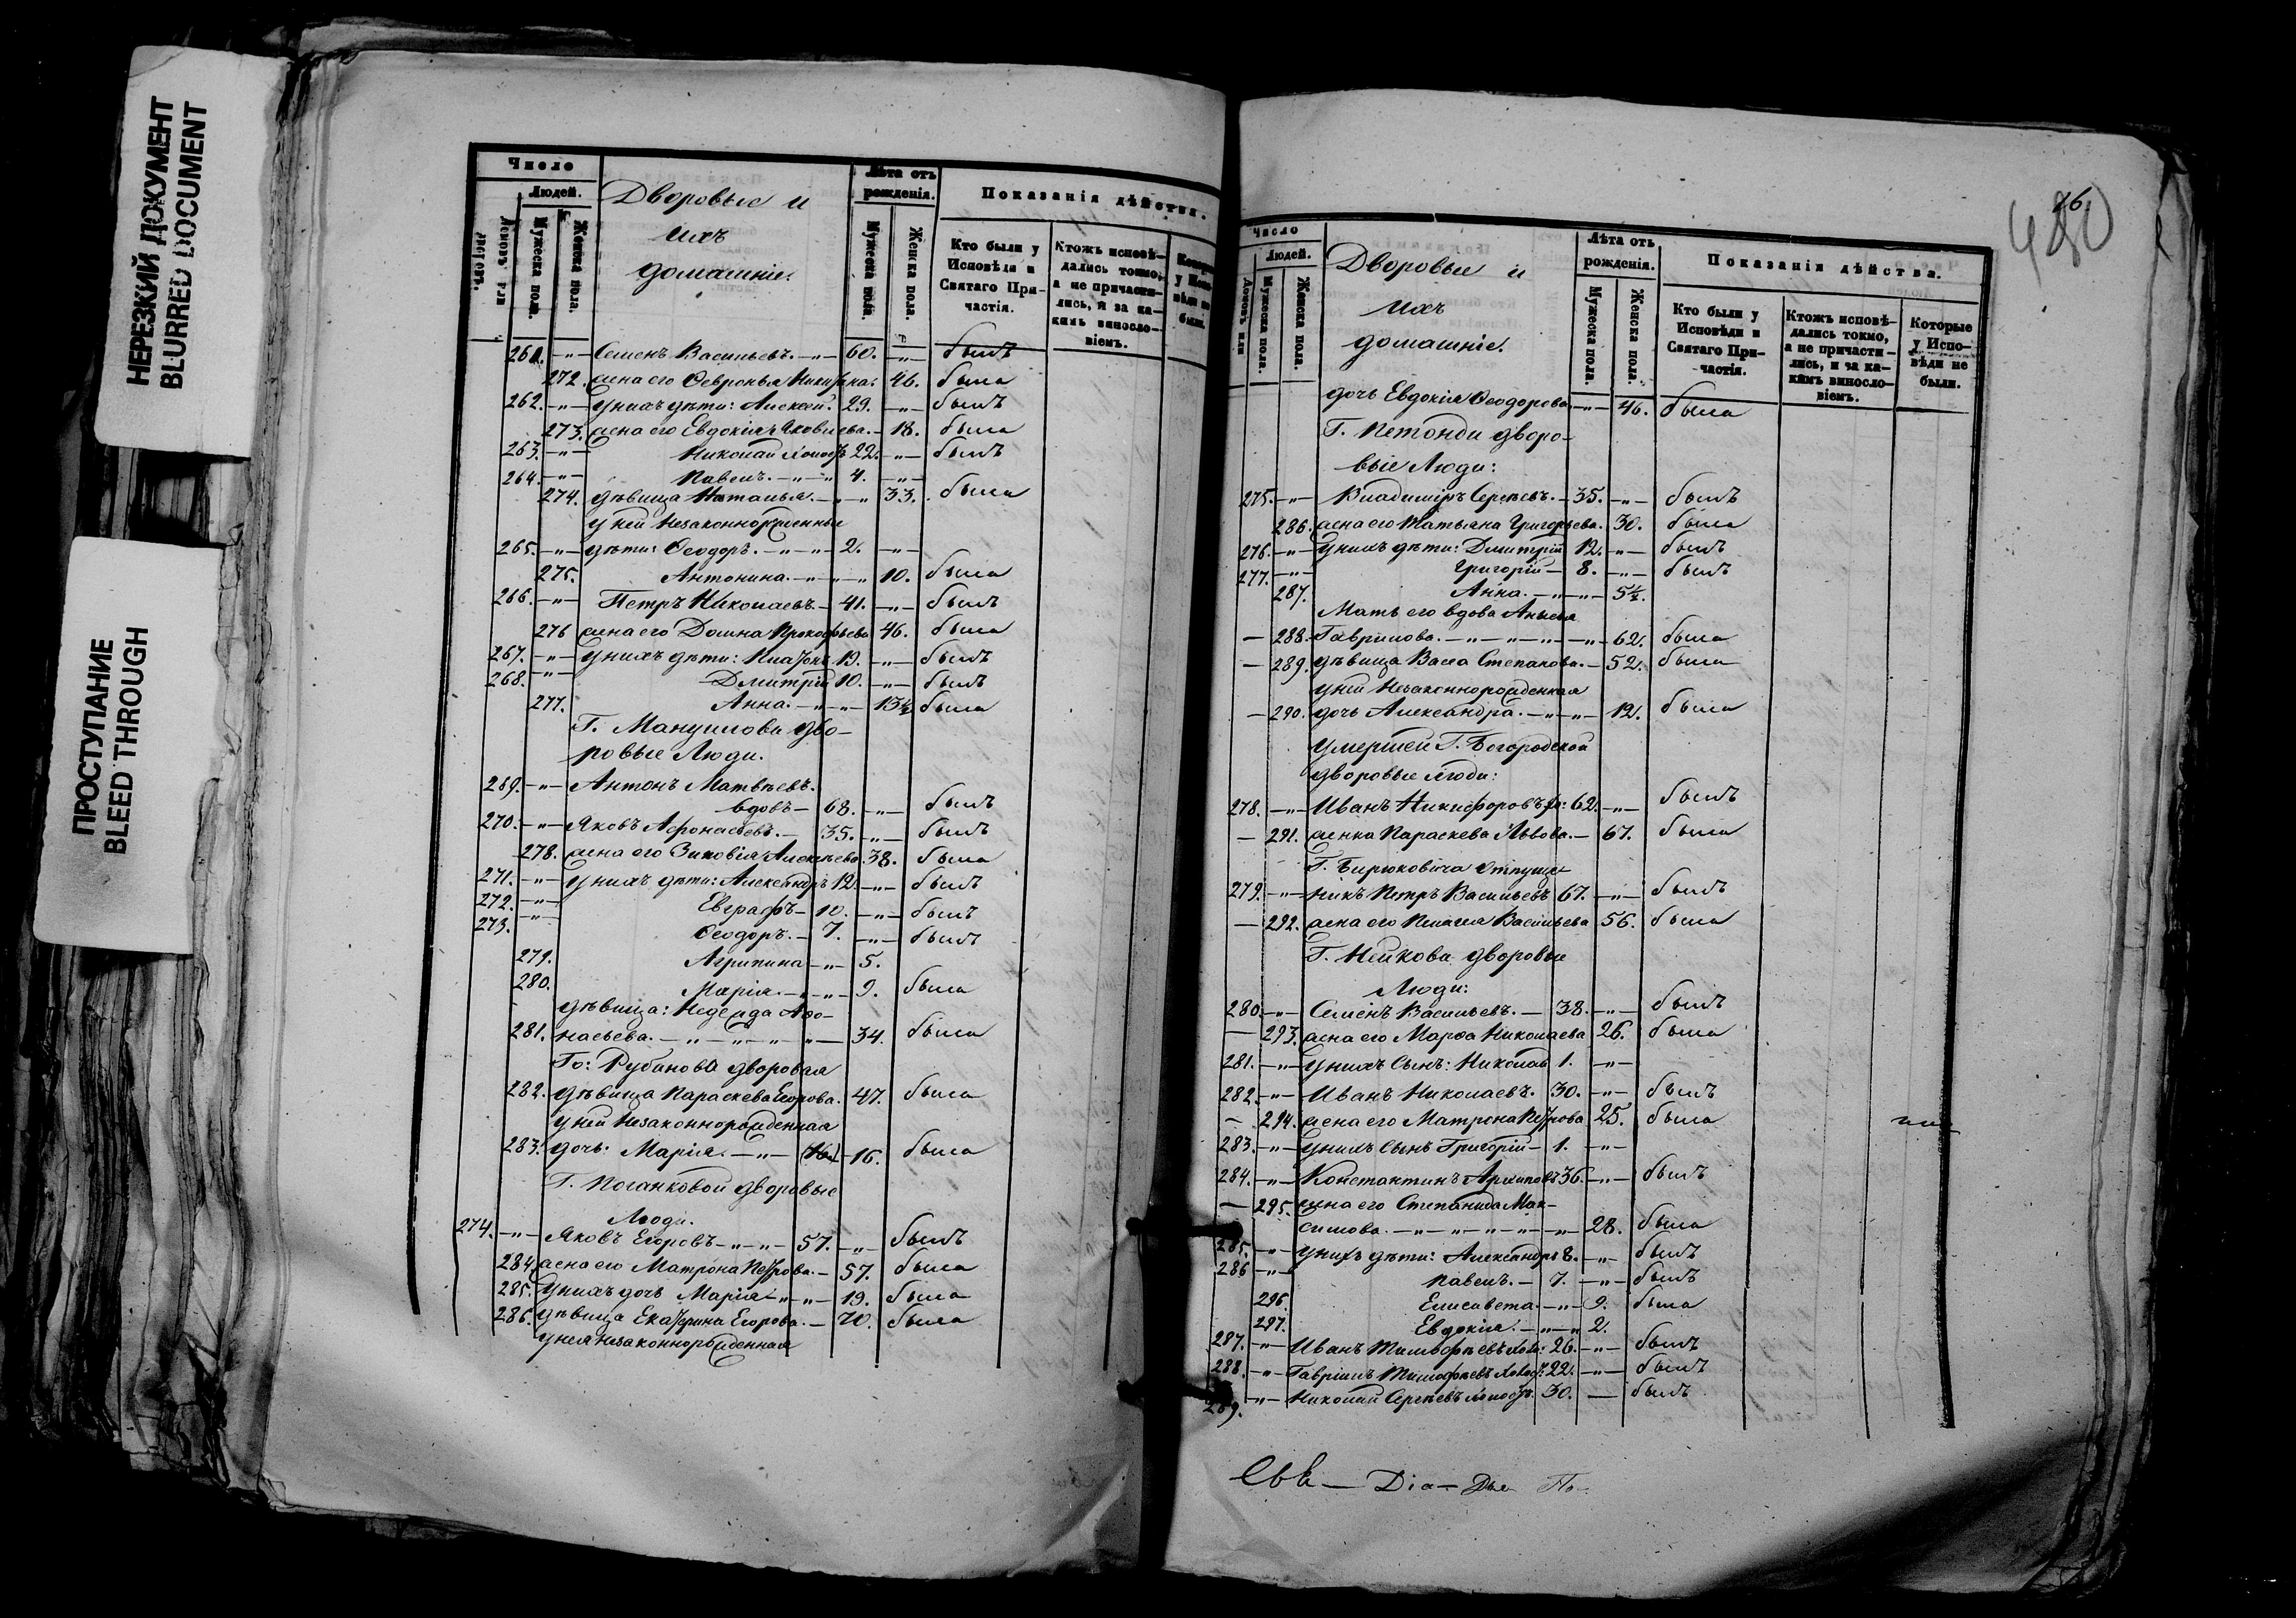 НЕРЕЗКИЙ ДОКУМЕНТ
BLURRED DOCUMENT
ПРОСТУПАНИЕ
BLEED THROUGH
Число
Людей.
Мужеска пола.
Женска пола.
Дворовые и
ихъ
домашніе.
Лѣта отъ
рожденія.
Мужеска пола.
Женска пола.
Показанія дѣйства.
Кто были у
Исповѣди и
Святаго При-
частія.
Ктожъ исповѣ-
дались токмо,
а не причасти-
лись, и за ка-
кимъ винсло-
віемъ.
261. —"— Семенъ Васильевъ. —"— 60. —"— былъ
272. жена его Ѳевронья 46. была
262. —"— у нихъ дѣти: Алексей. 29. —"— былъ
273. жена его Евдокія Яковлева. — 18. была
263. —"— Николай холост 22. —"— былъ
264. —"— Павелъ. —"—" 4. —"—
274. дѣвица Наталья. —"—" 33. была
у ней незаконнорожденные
265. —"— дѣти: Ѳеодоръ. —"—"— 2. —"—
275. Антонина. —"—"—" 10. была
266. —"— Петръ Николаевъ — 41. —"— былъ
276 жена его Домна Прокофьева 46. была
267. —"— у нихъ дѣти: 19. —"— былъ
268. —"— Дмитрій 10. —"— былъ
277. Анна. —"—"— 13½ была
Г. Мануилова дво-
ровые Люди.
269. —"— Антонъ Матвѣевъ.
вдовъ — 68. —"— былъ
270. —"— Яковъ Афонасьевъ. — 35. —"— былъ
278. жена его Зиновія Алексѣева 38. была
271. —"— у нихъ дѣти: Александръ 12. —"— былъ
272. —"— Евграфъ — 10. —"— былъ
273. —"— Ѳеодоръ. — 7. —"— былъ
279. Агрипина —"— 5.
280. Марія. —"—"— 9. была
дѣвица: Надежда Афо-
281. насьева. —"—"—"—"— 34. была
Го: Рубанова дворовая
282. дѣвица Параскева Егорова. 47. была
у ней незаконнорожденная
283. дочь: Марія. —"— 16. была
Г. Поганковой дворовые
Люди.
274. —"— Яковъ Егоровъ —"—"— 57. —"— былъ
284. жена его Матрона Петрова. — 57. была
285. у нихъ дочь Марія —"—"— 19. была
286. дѣвица Екатерина Егорова. — 70. была
у нея незаконнорожденная
76.
480
Число
Людей.
Мужеска пола.
Женска пола.
Дворовые и
ихъ
домашніе.
Лѣта отъ
рожденія.
Мужеска пола.
Женска пола.
Показанія дѣйства.
Кто были у
Исповѣди и
Святаго При-
частія.
Ктожъ исповѣ-
дались токмо,
а не причасти-
лись, и за ка-
кимъ винсло-
віемъ.
Которые
у Испо-
вѣди не
были.
дочь Евдокія Ѳеодорова —"— 46. была
Г. Петонди дворо-
выіе Люди:
275. —"— Владиміръ Сергѣевъ. — 35. —"— былъ
286. жена его Татьяна Григорьева. 30. была
276. —"— у нихъ дѣти: Дмитрій 12. —"— былъ
277. —"— Григорій — 8. —"— былъ
287. Анна. —"—"— 5½.
Мать его вдова Анисья
— 288. Гаврилова. —"—"—"—"— 62. была
— 289. дѣвица Васса Степанова. — 52. была
у ней незаконнорожденная
— 290. дочь Александра. —"—"— 12. была
умершей Г. Богородской
дворовые люди:
278. —"— Иванъ Никифоровъ 62. —"— былъ
— 291. женка Параскева Львова. — 67. была
Г. Бирюковича отпуще-
279. —"— никъ Петръ Васильевъ 67. —"— былъ
— 292. жена его Пелагея Васильева 56. была
Г. Нейкова дворовые
Люди:
280. —"— Семенъ Васильевъ. — 38. —"— былъ
— 293. жена его Марѳа Николаева 26. была
281. —"— у нихъ сынъ: Николай 1. —"—
282. —"— Иванъ Николаевъ. 30. —"— былъ
— 294. жена его Матрона Петрова 25. была
283. —"— у нихъ сынъ Григорій — 1. —"—
284. —"— Константинъ Архиповъ 36. —"— былъ
— 295. жена его Степанида Мак-
симова. —"—"—"—"—"— 28. была
285. —"— у нихъ дѣти: Александръ 8. —"— былъ
286 —"— Павелъ. — 7. —"— былъ
296. Елисавета. —"— 9. была
297. Евдокія. —"—" 2.
287. —"— Иванъ Тимофѣевъ 26. —"— былъ
288. —"— Гавріилъ Тимофѣевъ 22. —"— былъ
289. —"— Николай Сергѣевъ холост. 30. — былъ
Dia —